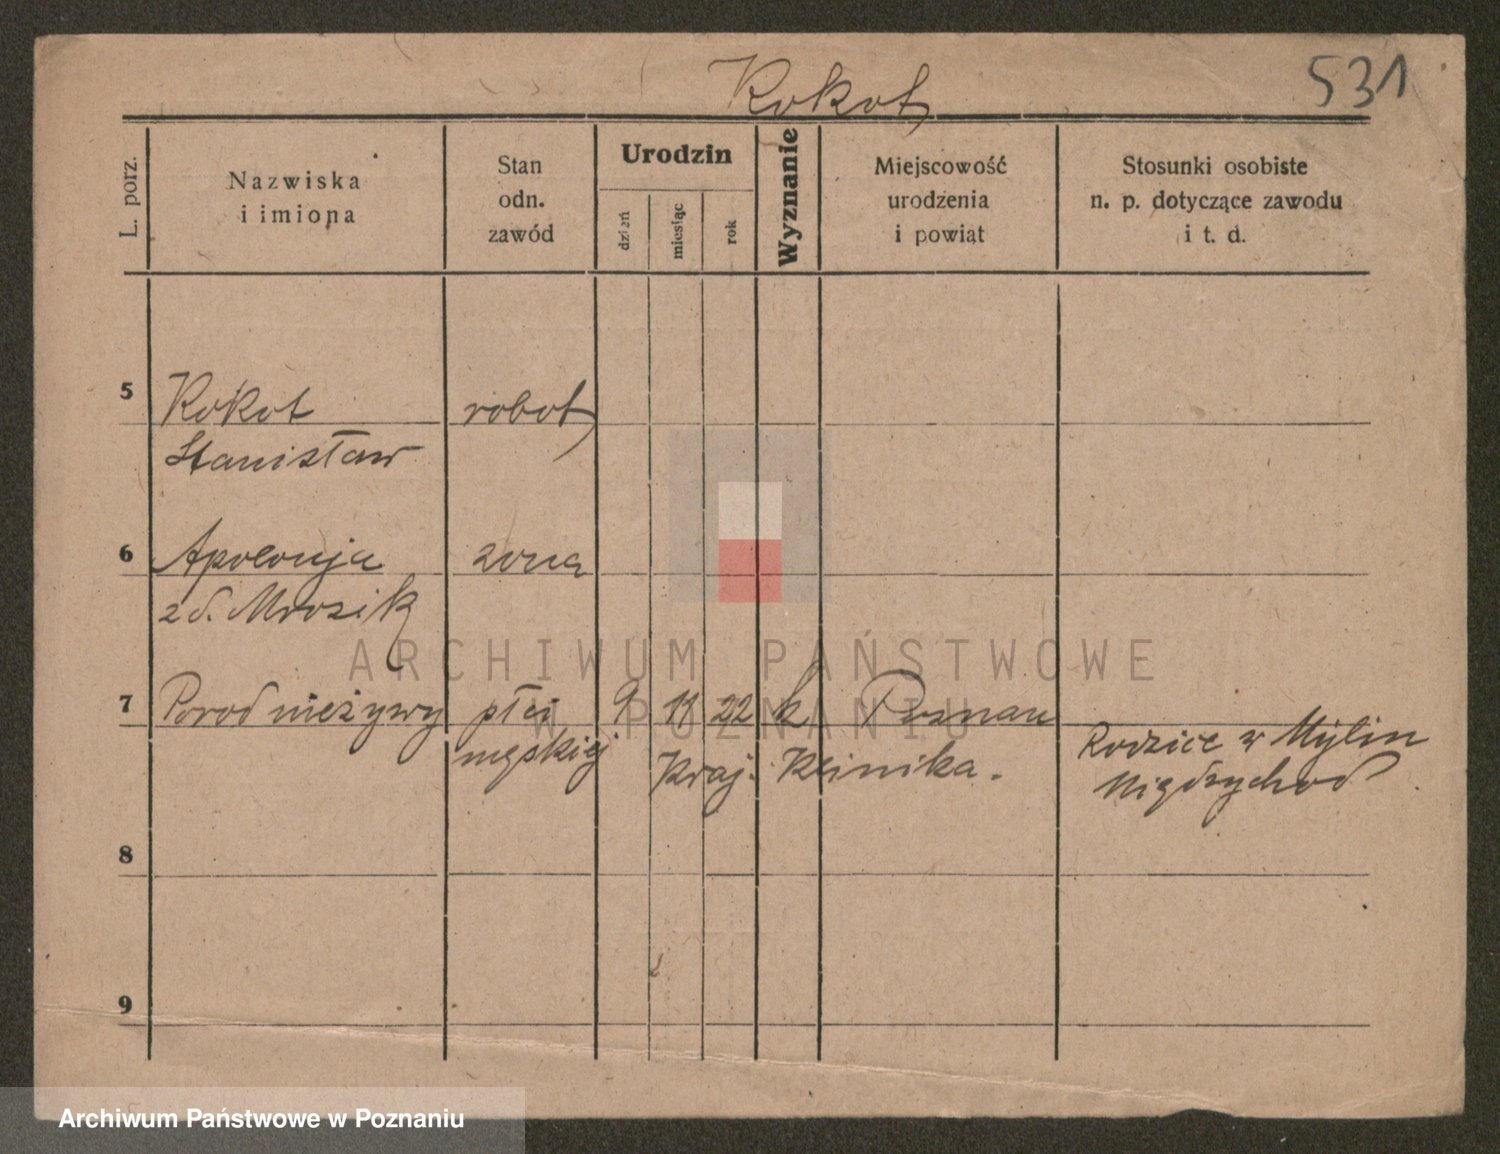 Kokot
531
L. porz.
Nazwiska
i imiona
Stan
odn.
zawód
Urodzin
dzień
miesiąc
rok
Wyznanie
Miejscowość
urodzenia
i powiat
Stosunki osobiste
n. p. dotyczące zawodu
i t. d.
5 Kokot robot
Stanisław
6 Apolonja żona
zd. Mrozik
ARCHIWUM PAŃSTWOWE
W POZNANIU
7 Poród nieżywy płci 9 11 22 k Poznań
męskiej Kraj. Klinika.
Rodzice w Mylin
Międzychod
8
9
Archiwum Państwowe w Poznaniu